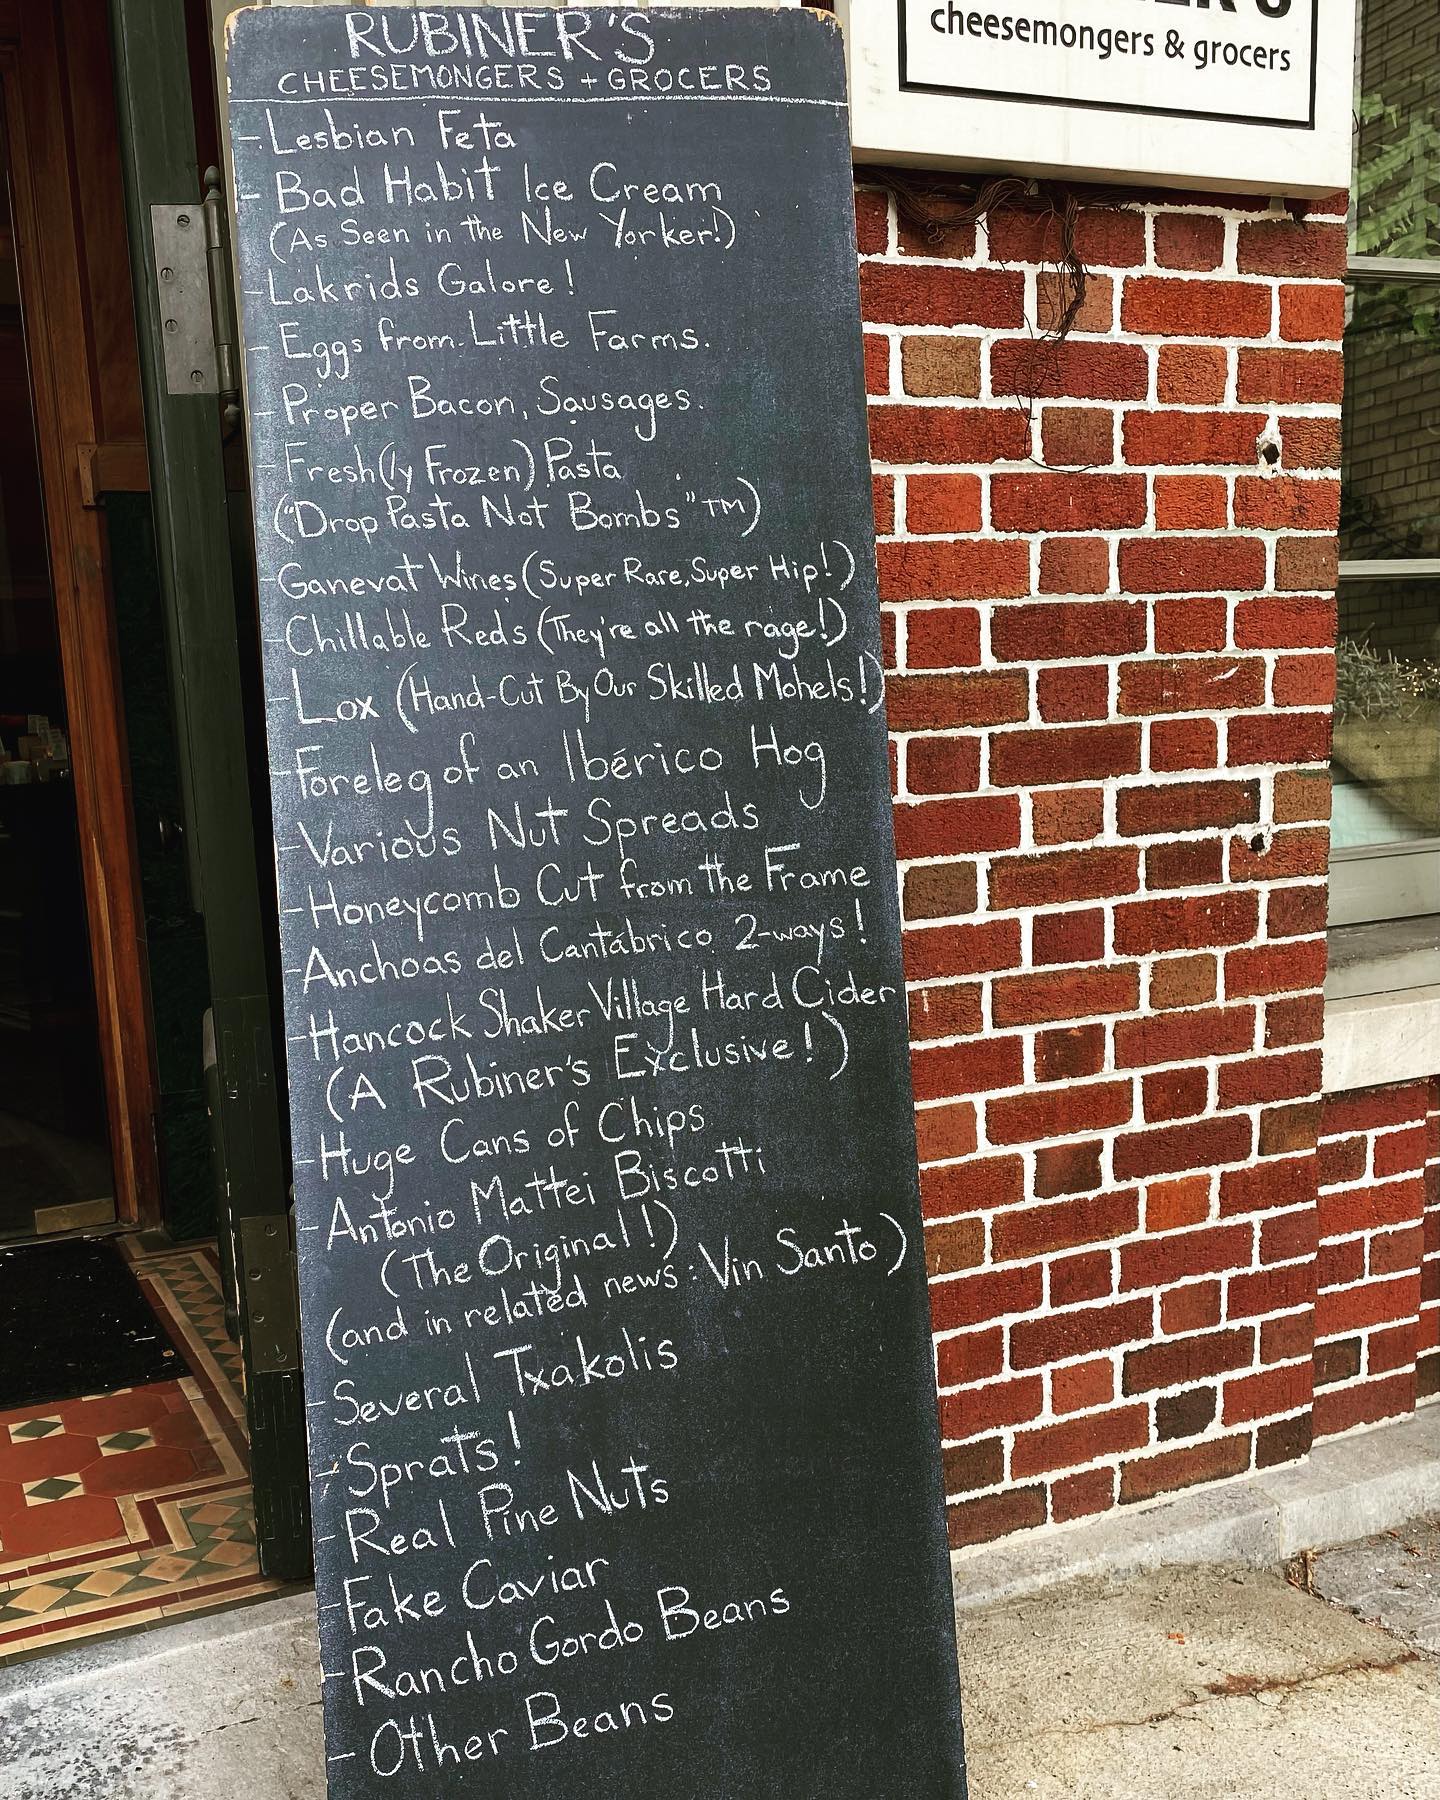 RUBINER'S
CHEESEMONGERS + GROCERS
- Lesbian Feta
- Bad Habit Ice Cream
(As Seen in the New Yorker!)
- Lakrids Galore!
- Eggs from Little Farms.
- Proper Bacon, Sausages.
- Fresh(ly Frozen) Pasta
("Drop Pasta Not Bombs"™)
- Ganevat Wines (Super Rare, Super Hip!)
- Chillable Reds (They're all the rage!)
- Lox (Hand-Cut By Our Skilled Mohels!)
- Foreleg of an Ibérico Hog
- Various Nut Spreads
- Honeycomb Cut from the Frame
- Anchoas del Cantábrico 2-ways!
- Hancock Shaker Village Hard Cider
(A Rubiner's Exclusive!)
- Huge Cans of Chips
- Antonio Mattei Biscotti
(The Original!)
(and in related news: Vin Santo)
- Several Txakolis
- Sprats!
- Real Pine Nuts
- Fake Caviar
- Rancho Gordo Beans
- Other Beans
cheesemongers & grocers